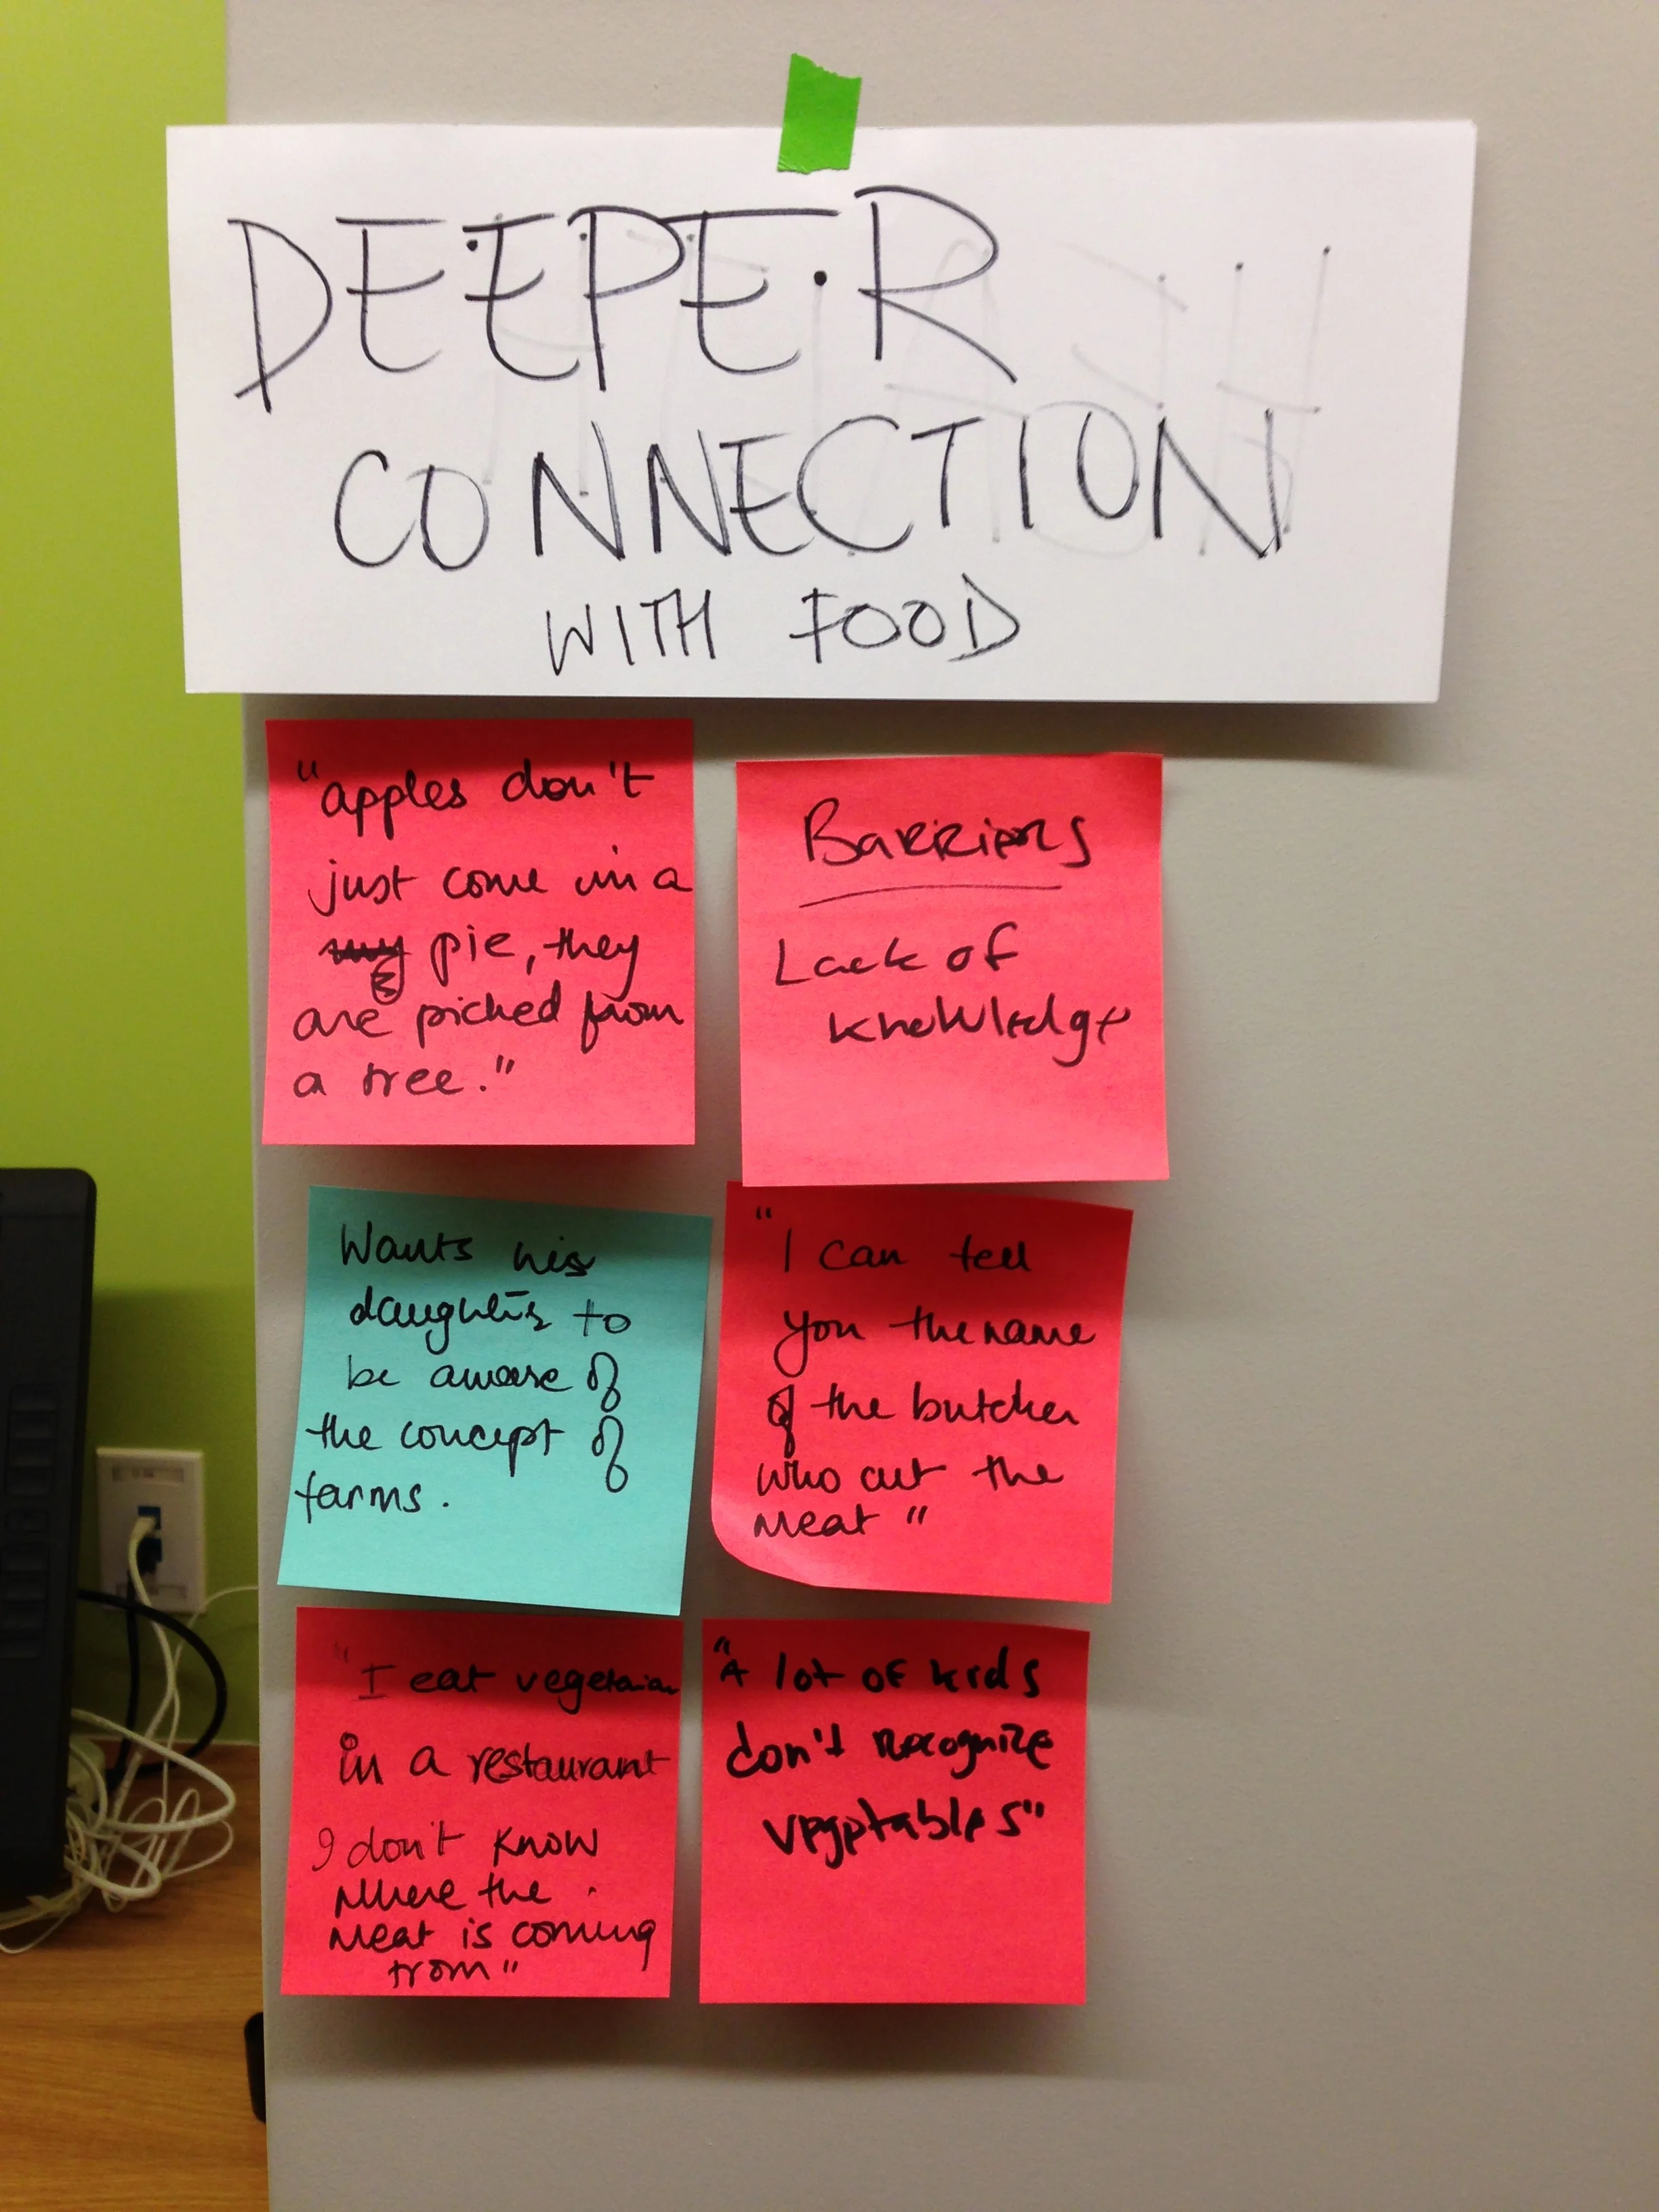 DEEPER
CONNECTION
WITH FOOD
"apples don't
just come in a
pie, they
are picked from
a tree."
Barriers
Lack of
knowledge
Wants his
daughters to
be aware of
the concept of
farms.
"I can tell
you the name
of the butcher
who cut the
meat"
"I eat vegetarian
in a restaurant
I don't know
where the
meat is coming
from"
"A lot of kids
don't recognize
vegetables"